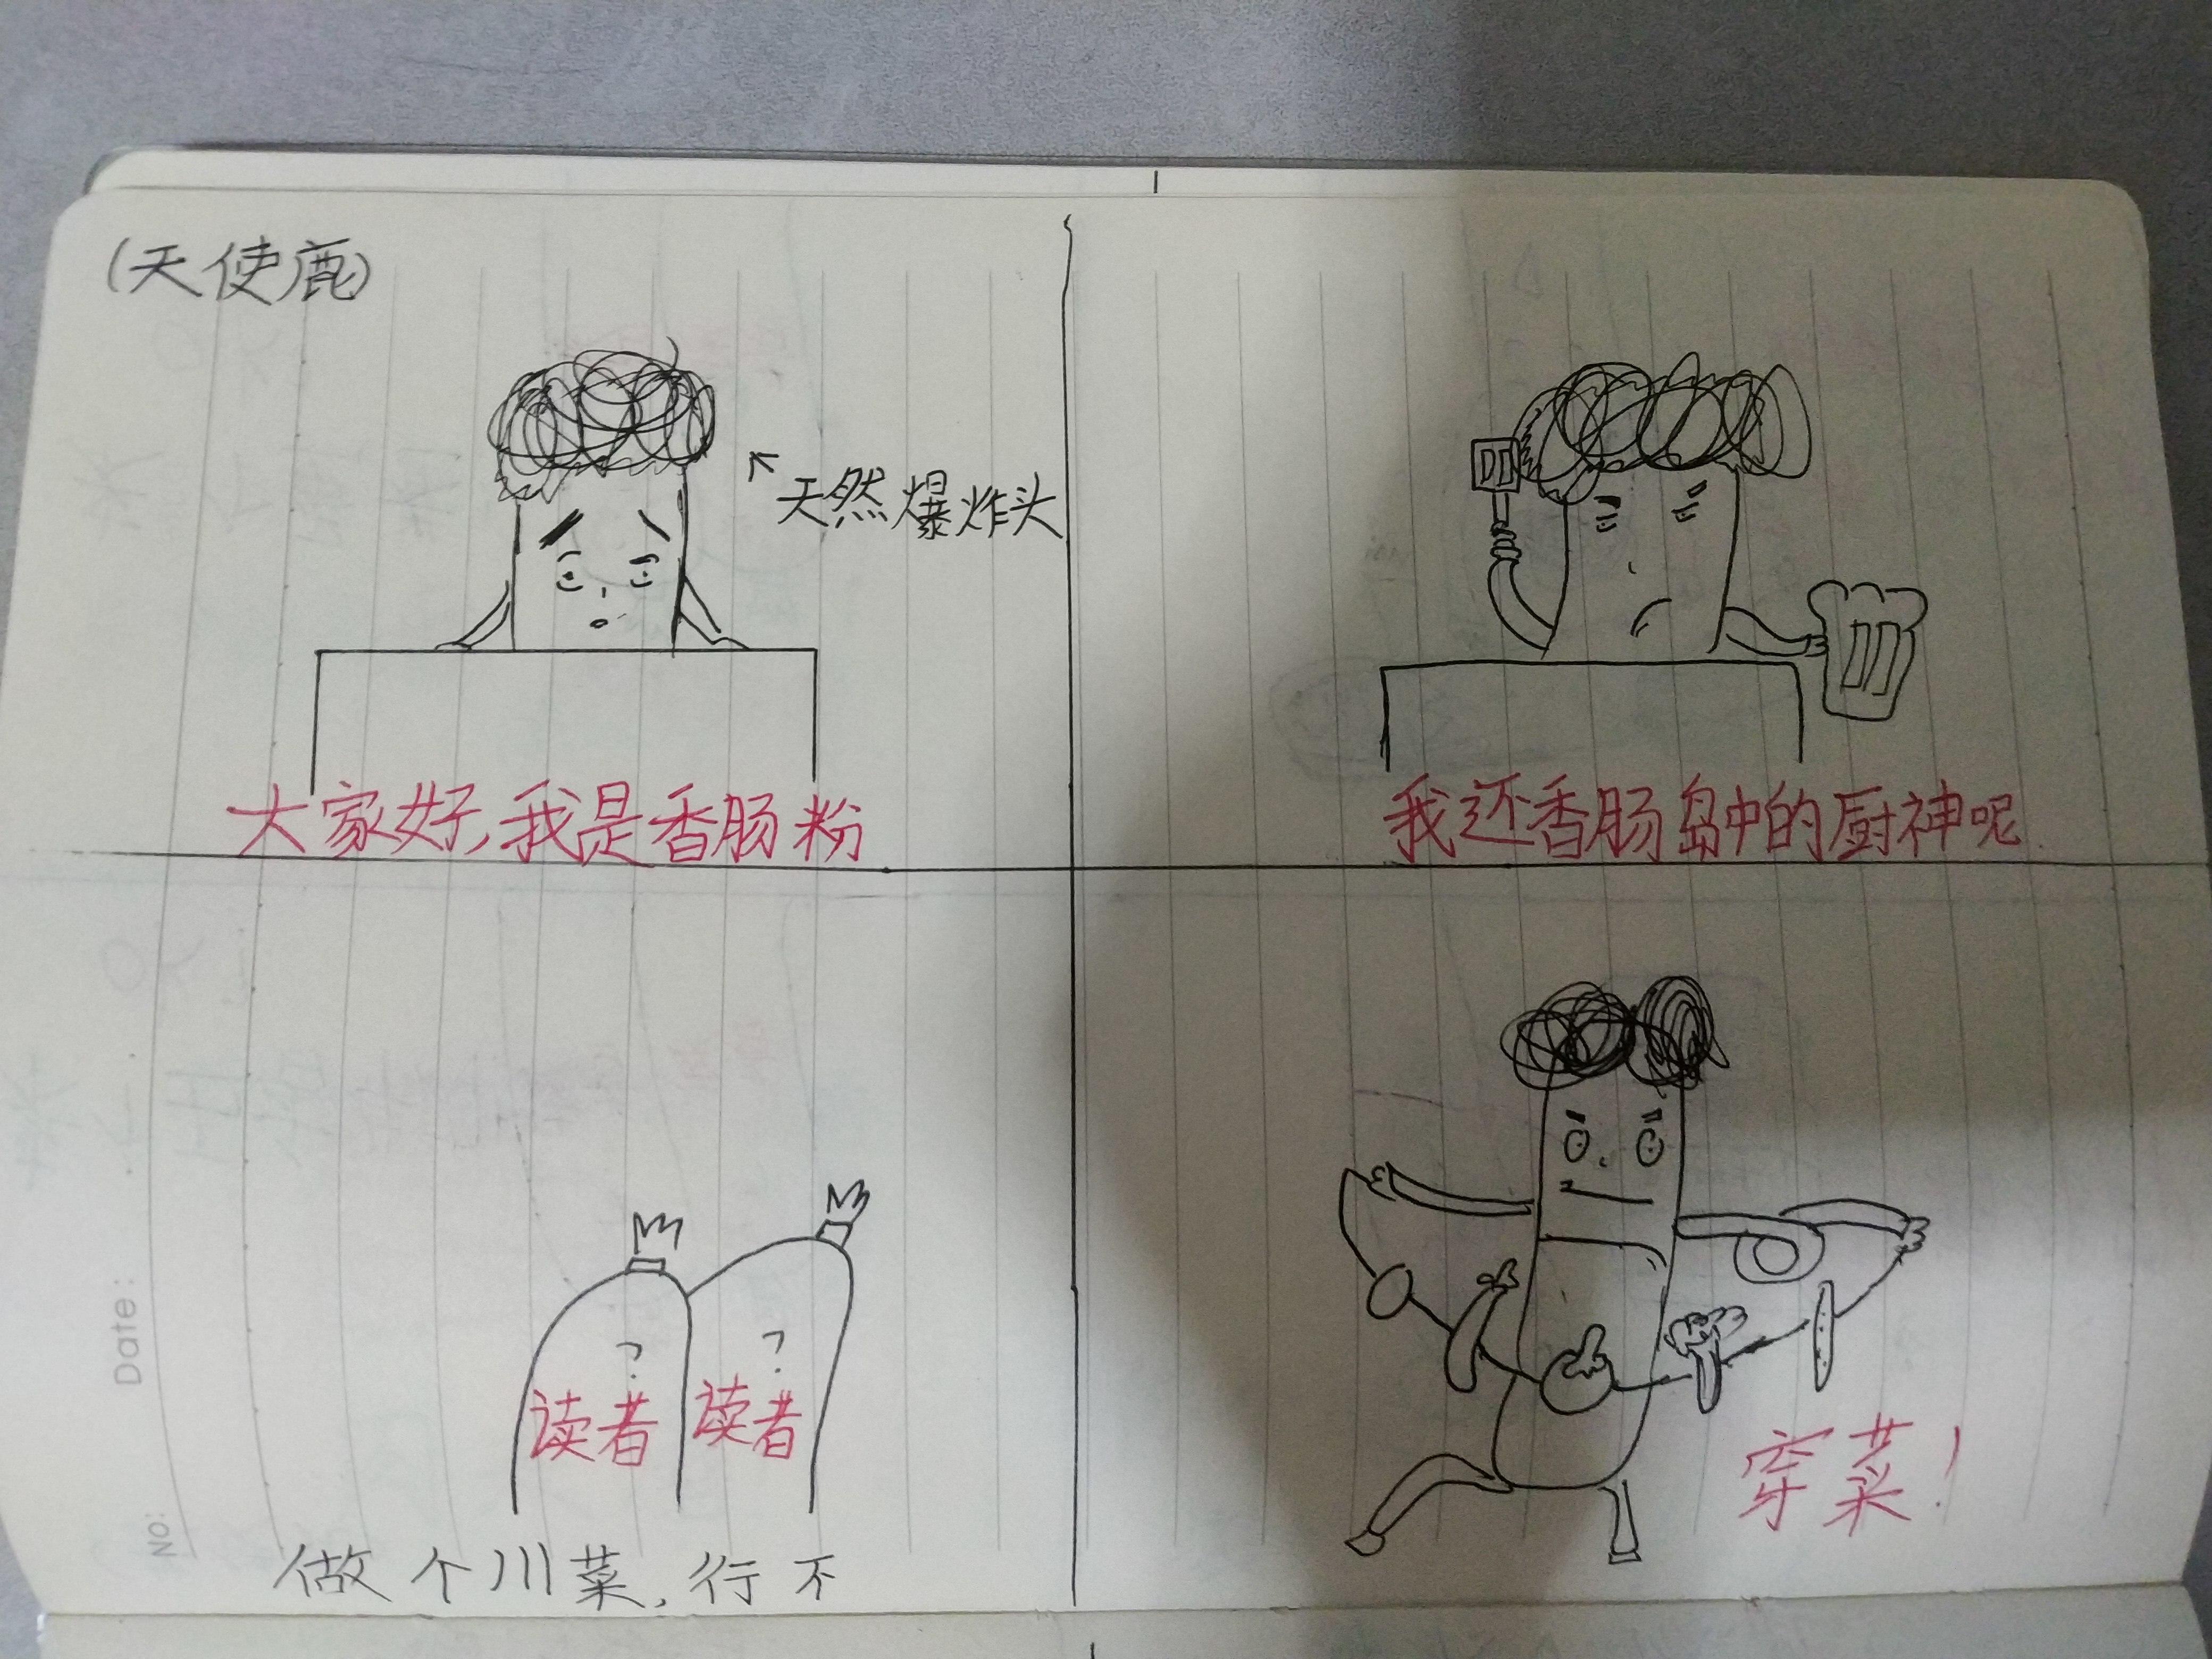 (天使鹿)
←天然爆炸头
大家好,我是香肠粉
我还香肠岛中的厨神呢
?
?
读者
读者
做个川菜,行不
穿菜!
Date:
No: